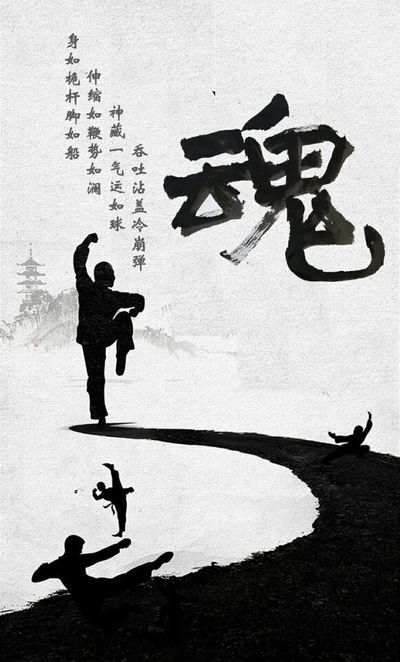 身如桅杆脚如船
伸缩如鞭势如澜
神藏一气运如球
吞吐沾盖冷崩弹
魂